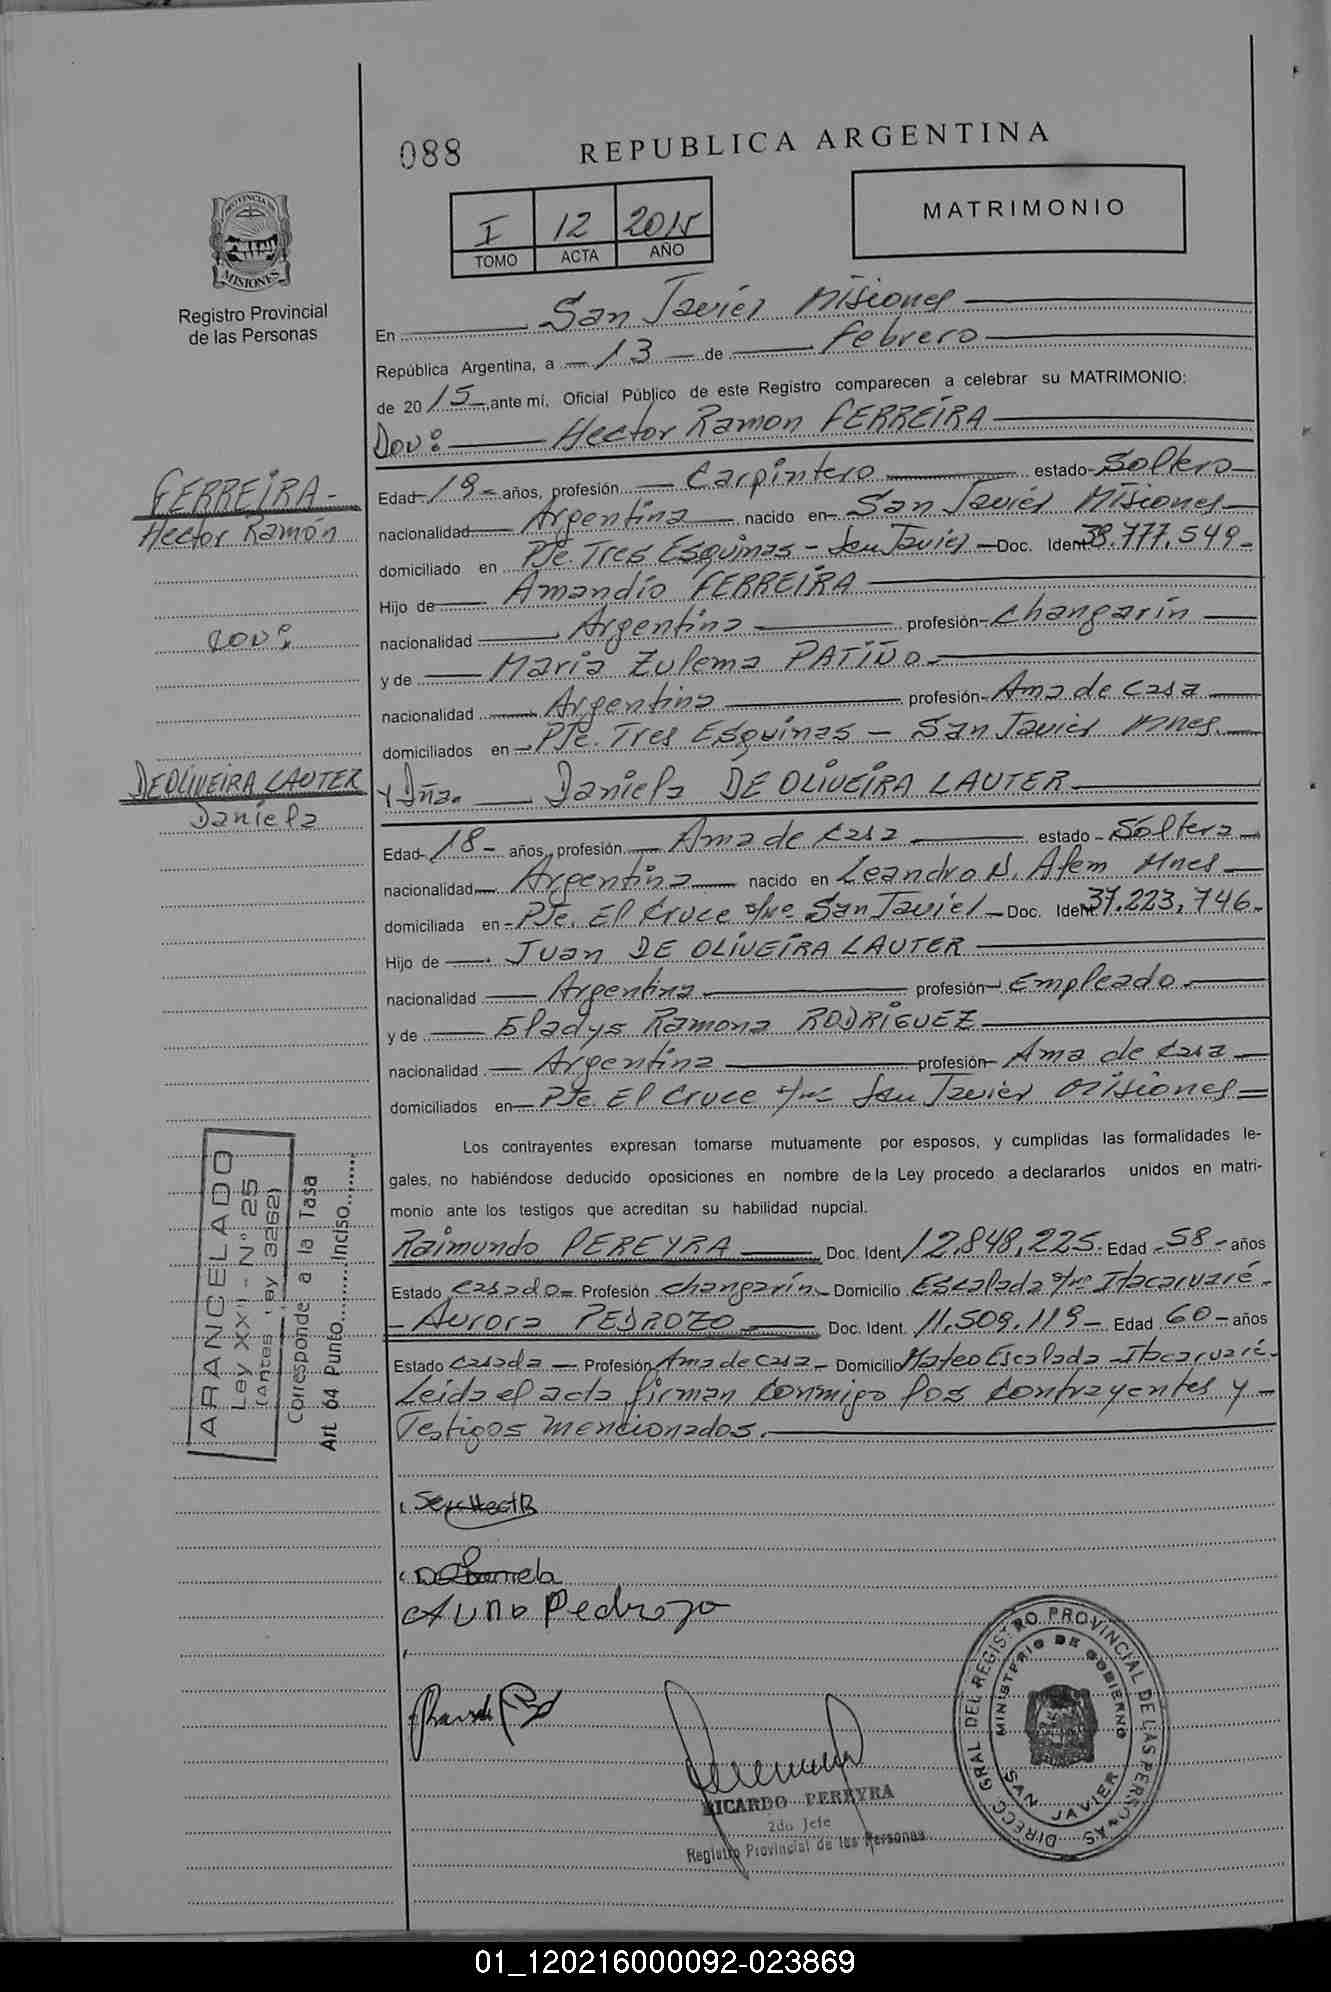 088
REPUBLICA ARGENTINA
I 12 2015
TOMO ACTA AÑO
MATRIMONIO
PROVINCIA DE
MISIONES
Registro Provincial
de las Personas
En San Javier Misiones
República Argentina, a 13 de Febrero
de 2015 ante mí, Oficial Público de este Registro comparecen a celebrar su MATRIMONIO:
Don: Hector Ramon FERREIRA
FERREIRA -
Hector Ramón
con:
DE OLIVEIRA LAUTER
Daniela
Edad 19 años, profesión Carpintero estado Soltero
nacionalidad Argentina nacido en San Javier Misiones
domiciliado en Pje. Tres Esquinas - San Javier Doc. Ident. 38.777.549
Hijo de Amandio FERREIRA
nacionalidad Argentina profesión Changarín
y de Maria Zulema PATIÑO
nacionalidad Argentina profesión Ama de casa
domiciliados en Pje. Tres Esquinas - San Javier Mnes.
y Dña. Daniela DE OLIVEIRA LAUTER
Edad 18 años, profesión Ama de casa estado Soltera
nacionalidad Argentina nacido en Leandro N. Alem Mnes
domiciliada en Pje. El Cruce s/nº San Javier Doc. Ident. 37.223.746
Hijo de Juan DE OLIVEIRA LAUTER
nacionalidad Argentina profesión Empleado
y de Gladys Ramona RODRIGUEZ
nacionalidad Argentina profesión Ama de casa
domiciliados en Pje. El Cruce s/nº San Javier Misiones
Los contrayentes expresan tomarse mutuamente por esposos, y cumplidas las formalidades le-
gales, no habiéndose deducido oposiciones en nombre de la Ley procedo a declararlos unidos en matri-
monio ante los testigos que acreditan su habilidad nupcial.
Raimundo PEREYRA Doc. Ident 12.848.225 Edad 58 años
Estado casado Profesión changarín Domicilio Escalada s/nº Itacaruaré
Aurora PEDROZO Doc. Ident. 11.509.119 Edad 60 años
Estado casada Profesión Ama de casa Domicilio Mateo Escalada Itacaruaré
Leída el acta firman conmigo los contrayentes y
Testigos mencionados.
ARANCELADO
Ley XXII - N° 25
(Antes Ley 3262)
Corresponde a la Tasa
Art. 64 Punto Inciso
Pedrozo
RICARDO PEREYRA
2do Jefe
Registro Provincial de las Personas
DIRECC. GRAL DEL REGISTRO PROVINCIAL DE LAS PERSONAS
MINISTERIO DE GOBIERNO
SAN JAVIER
01_120216000092-023869